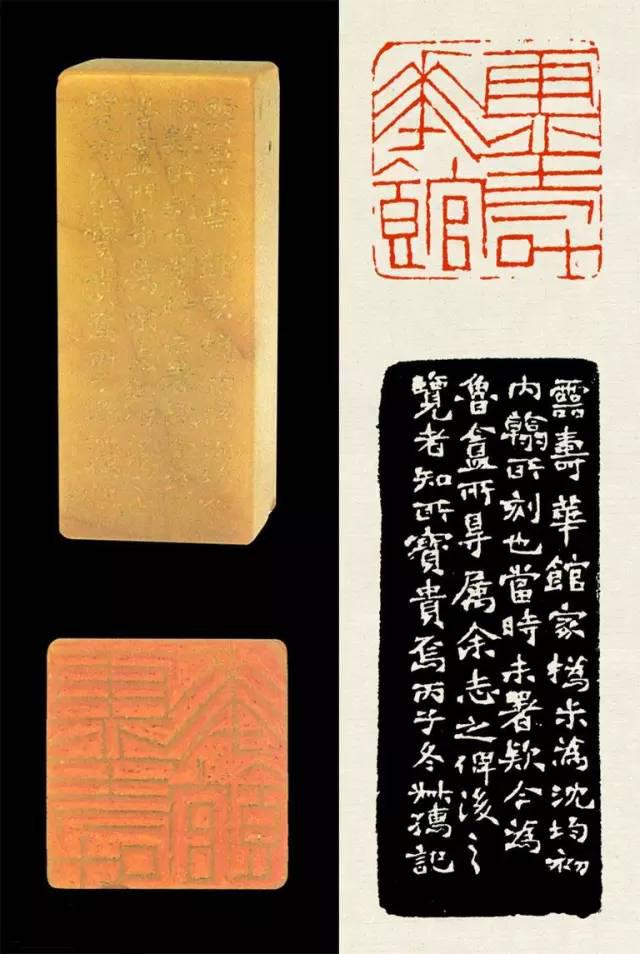 靈壽
華館
靈壽華館家撝尗為沈均初
內翰所刻也當時未署款今為
魯盦所得属余志之俾後之
覽者知所寶貴焉丙子冬尗孺記